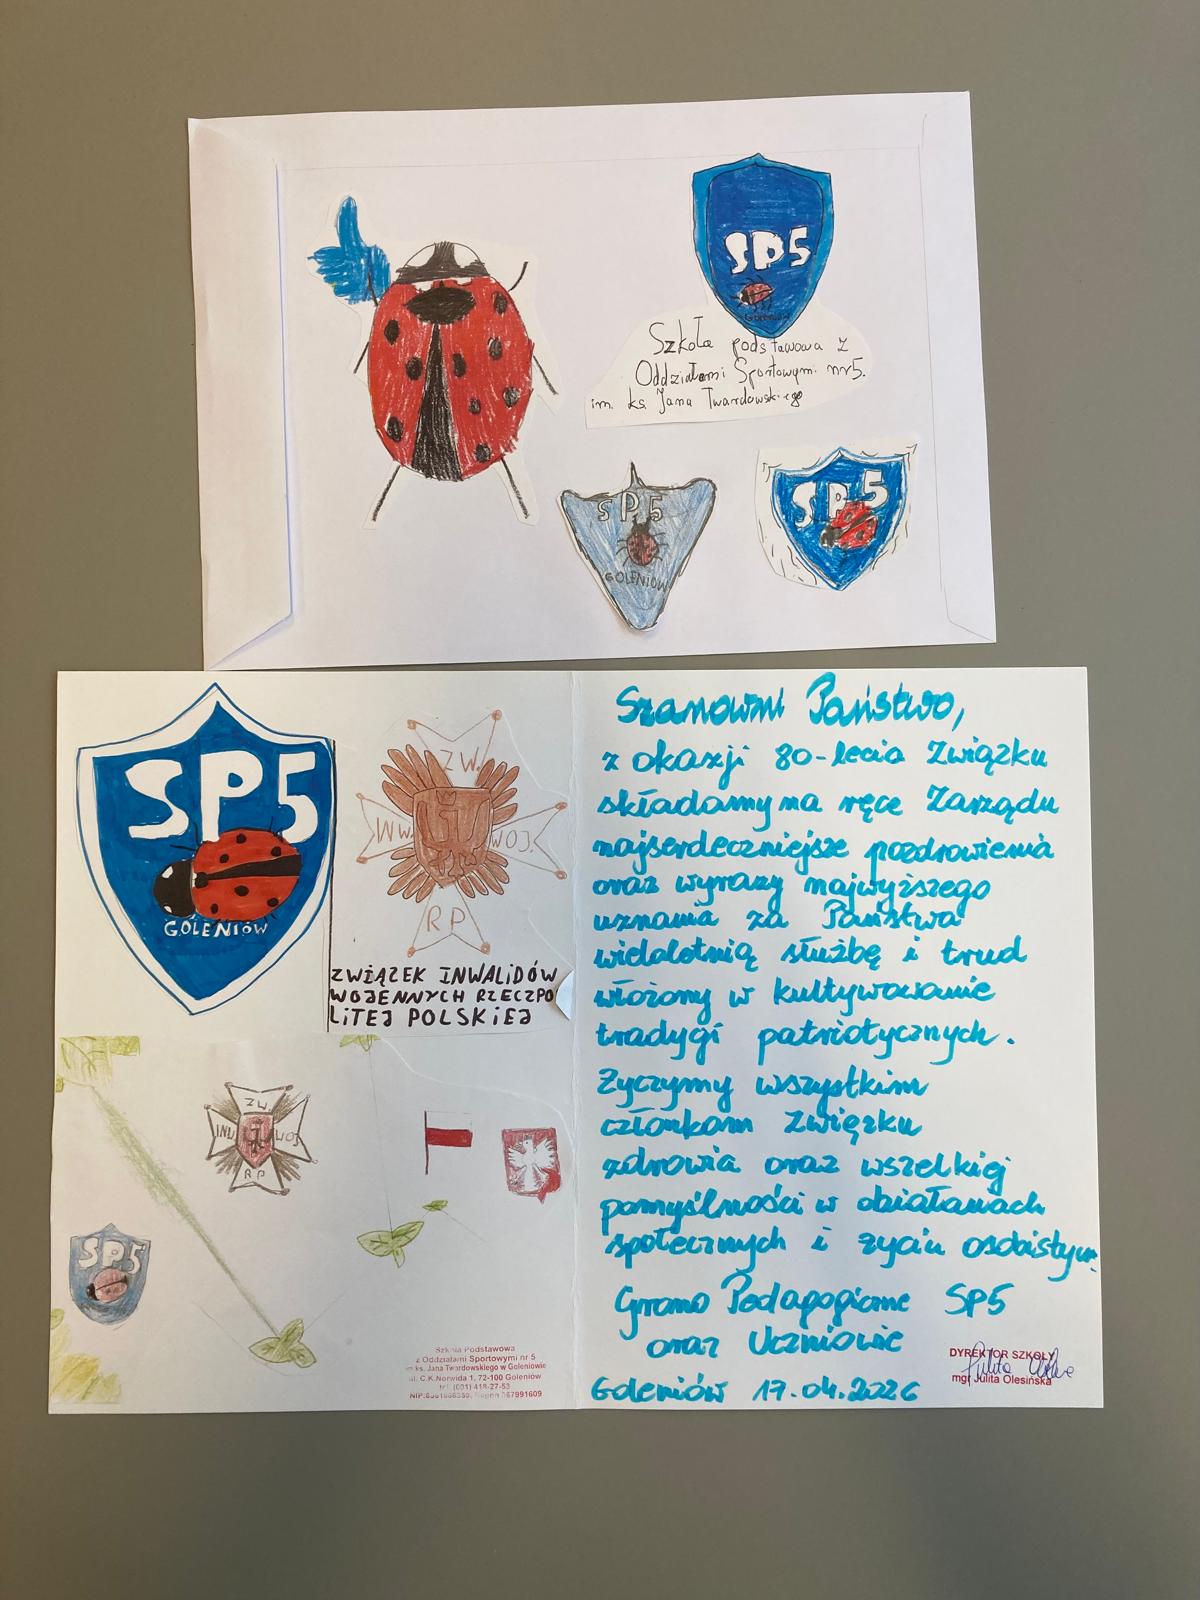 SP5
GOLENIÓW
Szkoła podstawowa z
Oddziałami Sportowymi nr 5.
im. ks. Jana Twardowskiego
SP5
GOLENIÓW
SP5
SP5
GOLENIÓW
ZW.
INW. WOJ.
RP
ZWIĄZEK INWALIDÓW
WOJENNYCH RZECZPO
LITEJ POLSKIEJ
ZW.
INW WOJ
RP
SP5
Szkoła Podstawowa
z Oddziałami Sportowymi nr 5
im ks. Jana Twardowskiego w Goleniowie
ul. C.K.Norwida 1, 72-100 Goleniów
tel. (091) 418-27-53
Szanowni Państwo,
z okazji 80-lecia Związku
składamy na ręce Zarządu
najserdeczniejsze pozdrowienia
oraz wyrazy najwyższego
uznania za Państwa
wieloletnią służbę i trud
włożony w kultywowanie
tradycji patriotycznych.
Życzymy wszystkim
członkom Związku
zdrowia oraz wszelkiej
pomyślności w działaniach
społecznych i życiu osobistym.
Grono Pedagogiczne SP5
oraz Uczniowie
Goleniów 17.04.2026
DYREKTOR SZKOŁY
mgr Julita Olesińska